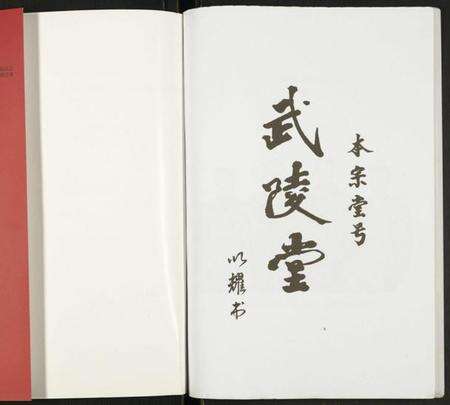 本宗堂号
武陵堂
明耀书